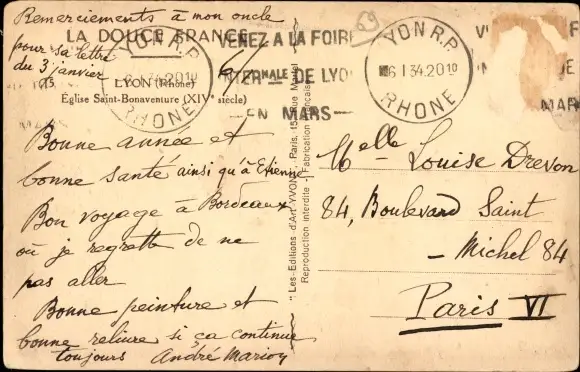 Remerciements à mon oncle
pour sa lettre
du 3 janvier
LA DOUCE FRANCE
LYON (Rhône)
Église Saint-Bonaventure (XIVe siècle)
Bonne année et
bonne santé ainsi qu'à Etienne
Bon voyage à Bordeaux
où je regrette de ne
pas aller
Bonne peinture et
bonne reliure si ça continue
toujours André
LYON R.P.
6 I 34. 20 10
RHONE
VENEZ A LA FOIRE
INTERNALE DE LYON
EN MARS
69
LYON R.P.
6 I 34. 20 10
RHONE
MAR
"Les Editions d'Art YVON" Paris, 15, Rue
Reproduction interdite - Fabrication Française
Melle Louise Drevon
84, Boulevard Saint
- Michel 84
Paris VI